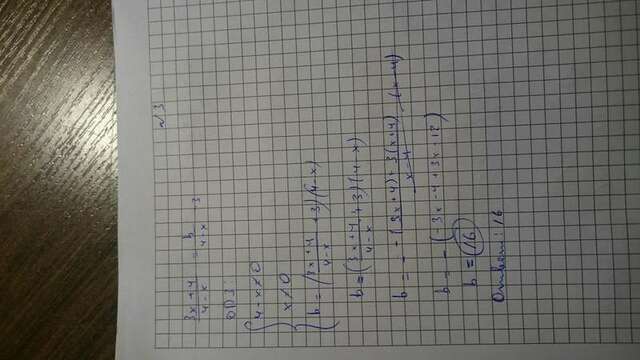 №3
3x+4/4-x = b/4-x - 3
ОДЗ:
{4-x≠0
x≠0
b=(3x+4/4-x+3)(4-x)
b=(3x+4/4-x+3)(4-x)
b= - -(3x+4)+3(x+4)/x-4 · (x-4)
b= -(-3x-4+3x-12)
b=16
Ответ: 16